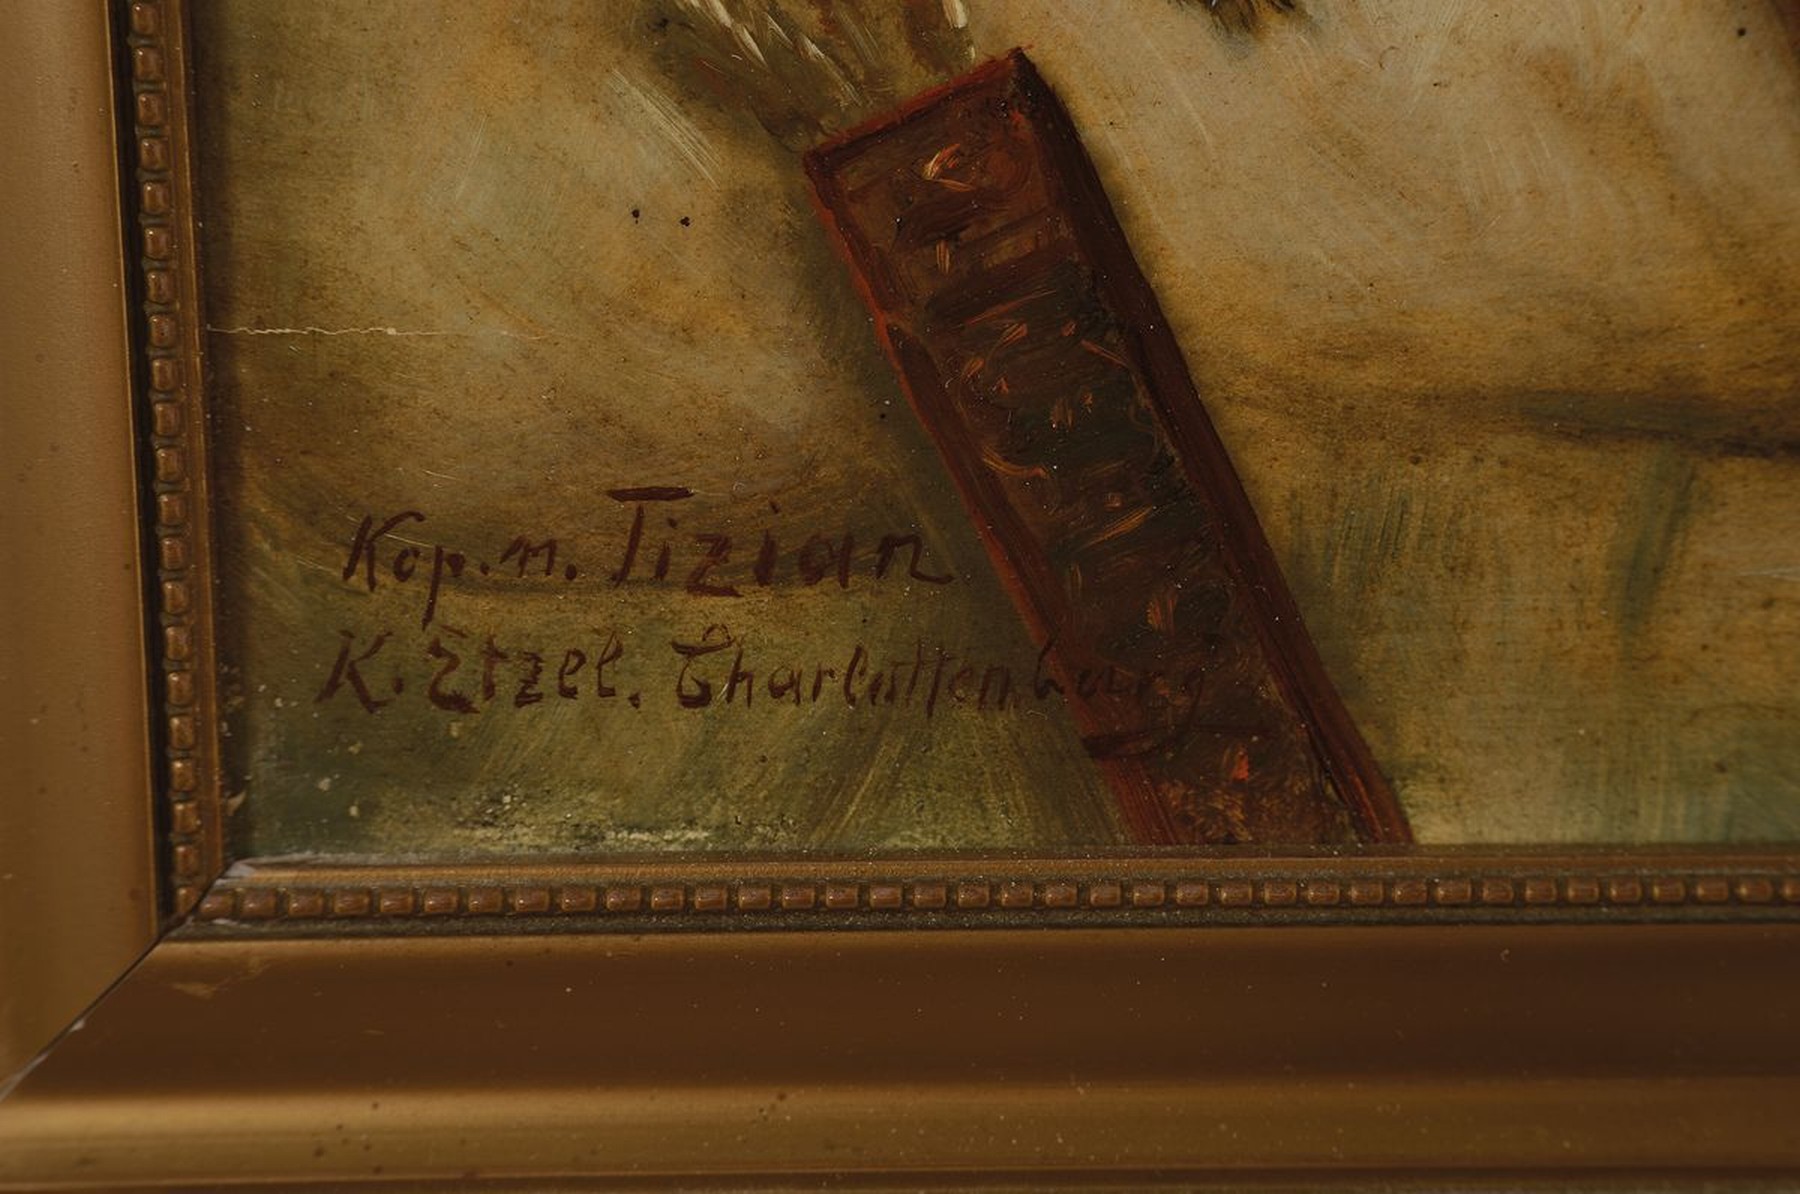 Kop. n. Tizian
K. Etzel. Charlottenburg